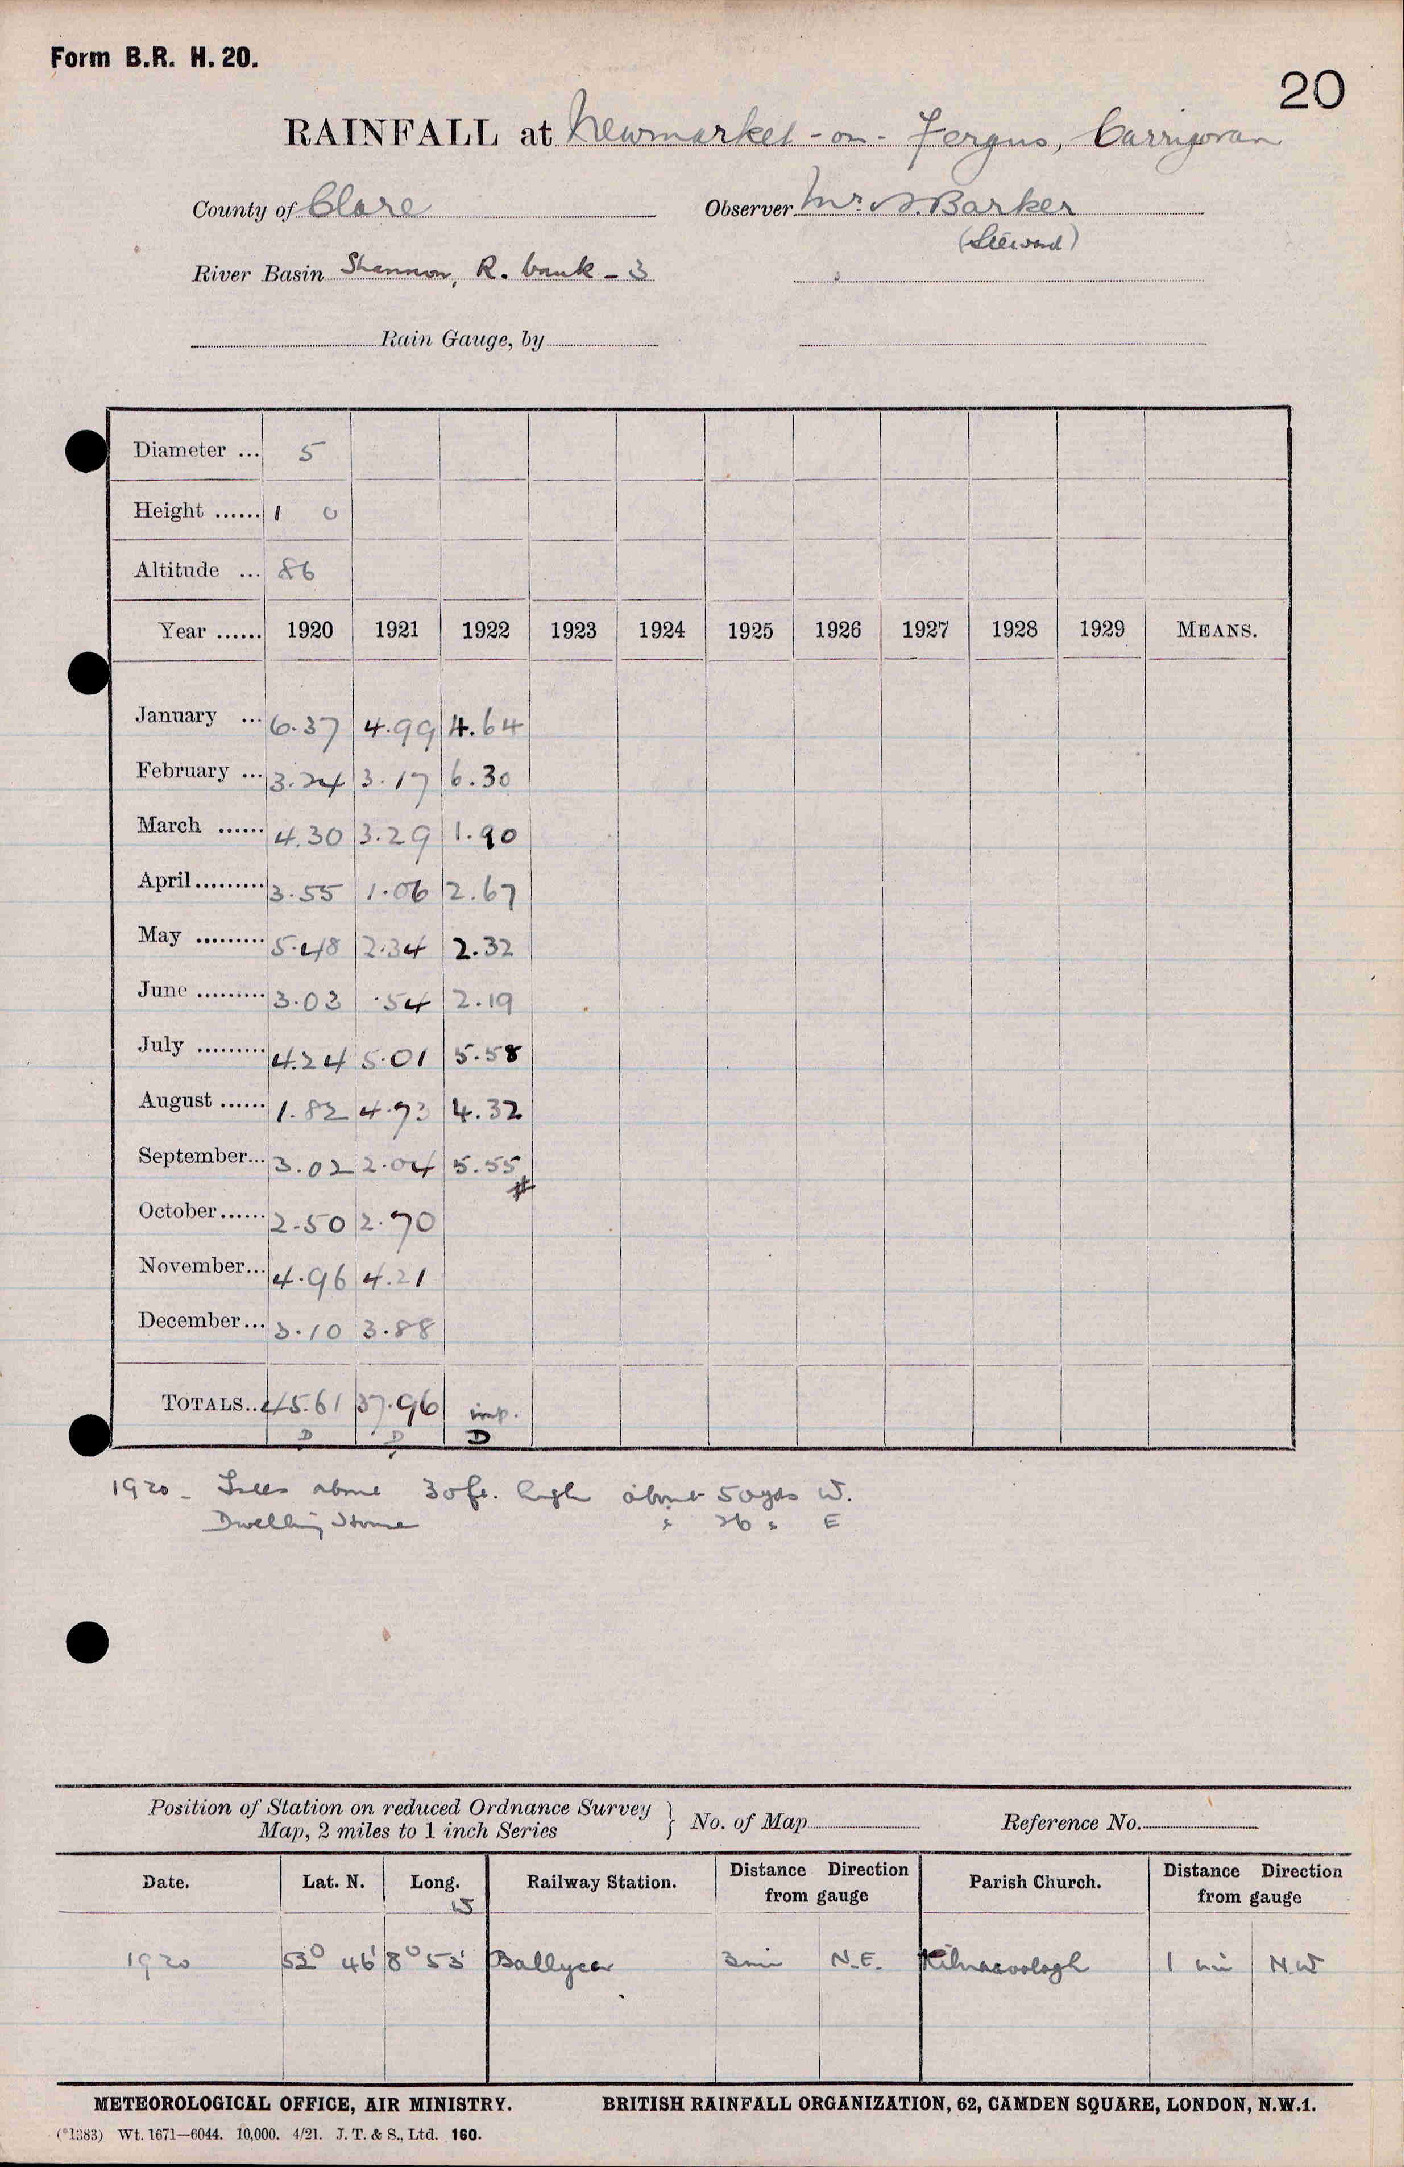 Form B.R. H. 20.
20
RAINFALL at Newmarket-on-Fergus, Carrigoran
County of Clare Observer Mr. A. Barker
(Steward)
River Basin Shannon, R. bank - 3
Rain Gauge, by
Diameter ... 5
Height ...... 1 0
Altitude ... 86
Year ...... 1920 1921 1922 1923 1924 1925 1926 1927 1928 1929 MEANS.
January ... 6.37 4.99 4.64
February ... 3.24 3.17 6.30
March ...... 4.30 3.29 1.90
April......... 3.55 1.06 2.67
May ......... 5.48 2.34 2.32
June ......... 3.03 .54 2.19
July ......... 4.24 5.01 5.58
August ...... 1.82 4.73 4.32
September... 3.02 2.04 5.55
#
October...... 2.50 2.70
November... 4.96 4.21
December... 3.10 3.88
TOTALS.. 45.61 37.96 imp.
D D D
1920 - Trees above 30 ft. high about 50 yds W.
Dwelling House " 26 " E
Position of Station on reduced Ordnance Survey
Map, 2 miles to 1 inch Series } No. of Map Reference No.
Date. Lat. N. Long. Railway Station. Distance Direction from gauge Parish Church. Distance Direction from gauge
W
1920 52° 46' 8° 53' Ballycar 3 mi N.E. Kilnasoolagh 1 mi N.W
METEOROLOGICAL OFFICE, AIR MINISTRY. BRITISH RAINFALL ORGANIZATION, 62, CAMDEN SQUARE, LONDON, N.W.1.
(*1383) Wt. 1671—6044. 10,000. 4/21. J. T. & S., Ltd. 160.